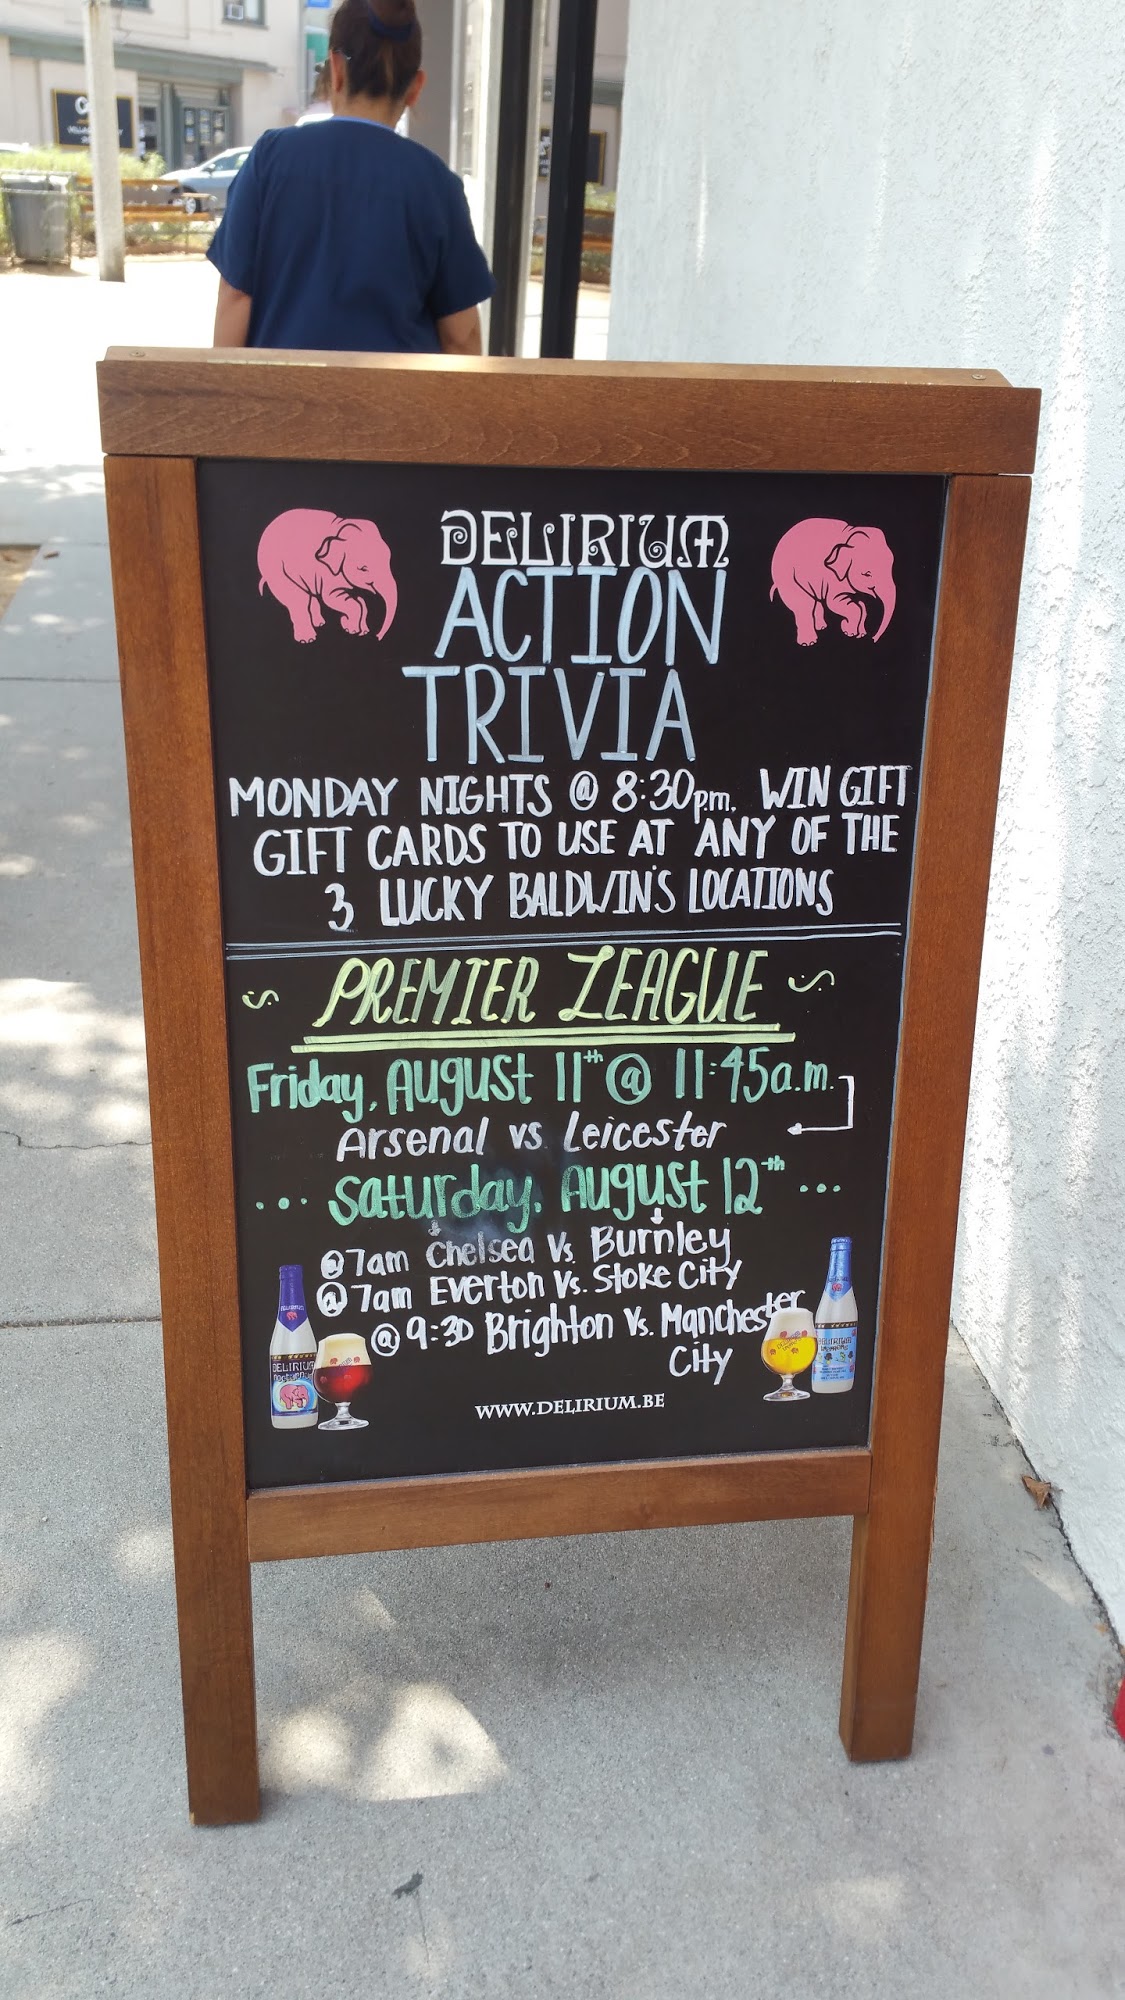 DELIRIUM
ACTION
TRIVIA
MONDAY NIGHTS @ 8:30p.m. WIN GIFT
GIFT CARDS TO USE AT ANY OF THE
3 LUCKY BALDWIN'S LOCATIONS
PREMIER LEAGUE
Friday, August 11th @ 11:45a.m.
Arsenal vs Leicester
... Saturday, August 12th ...
@7am Chelsea Vs. Burnley
@7am Everton Vs. Stoke City
@ 9:30 Brighton Vs. Manchester
City
DELIRIUM
nocturnum
DELIRIUM
WWW.DELIRIUM.BE